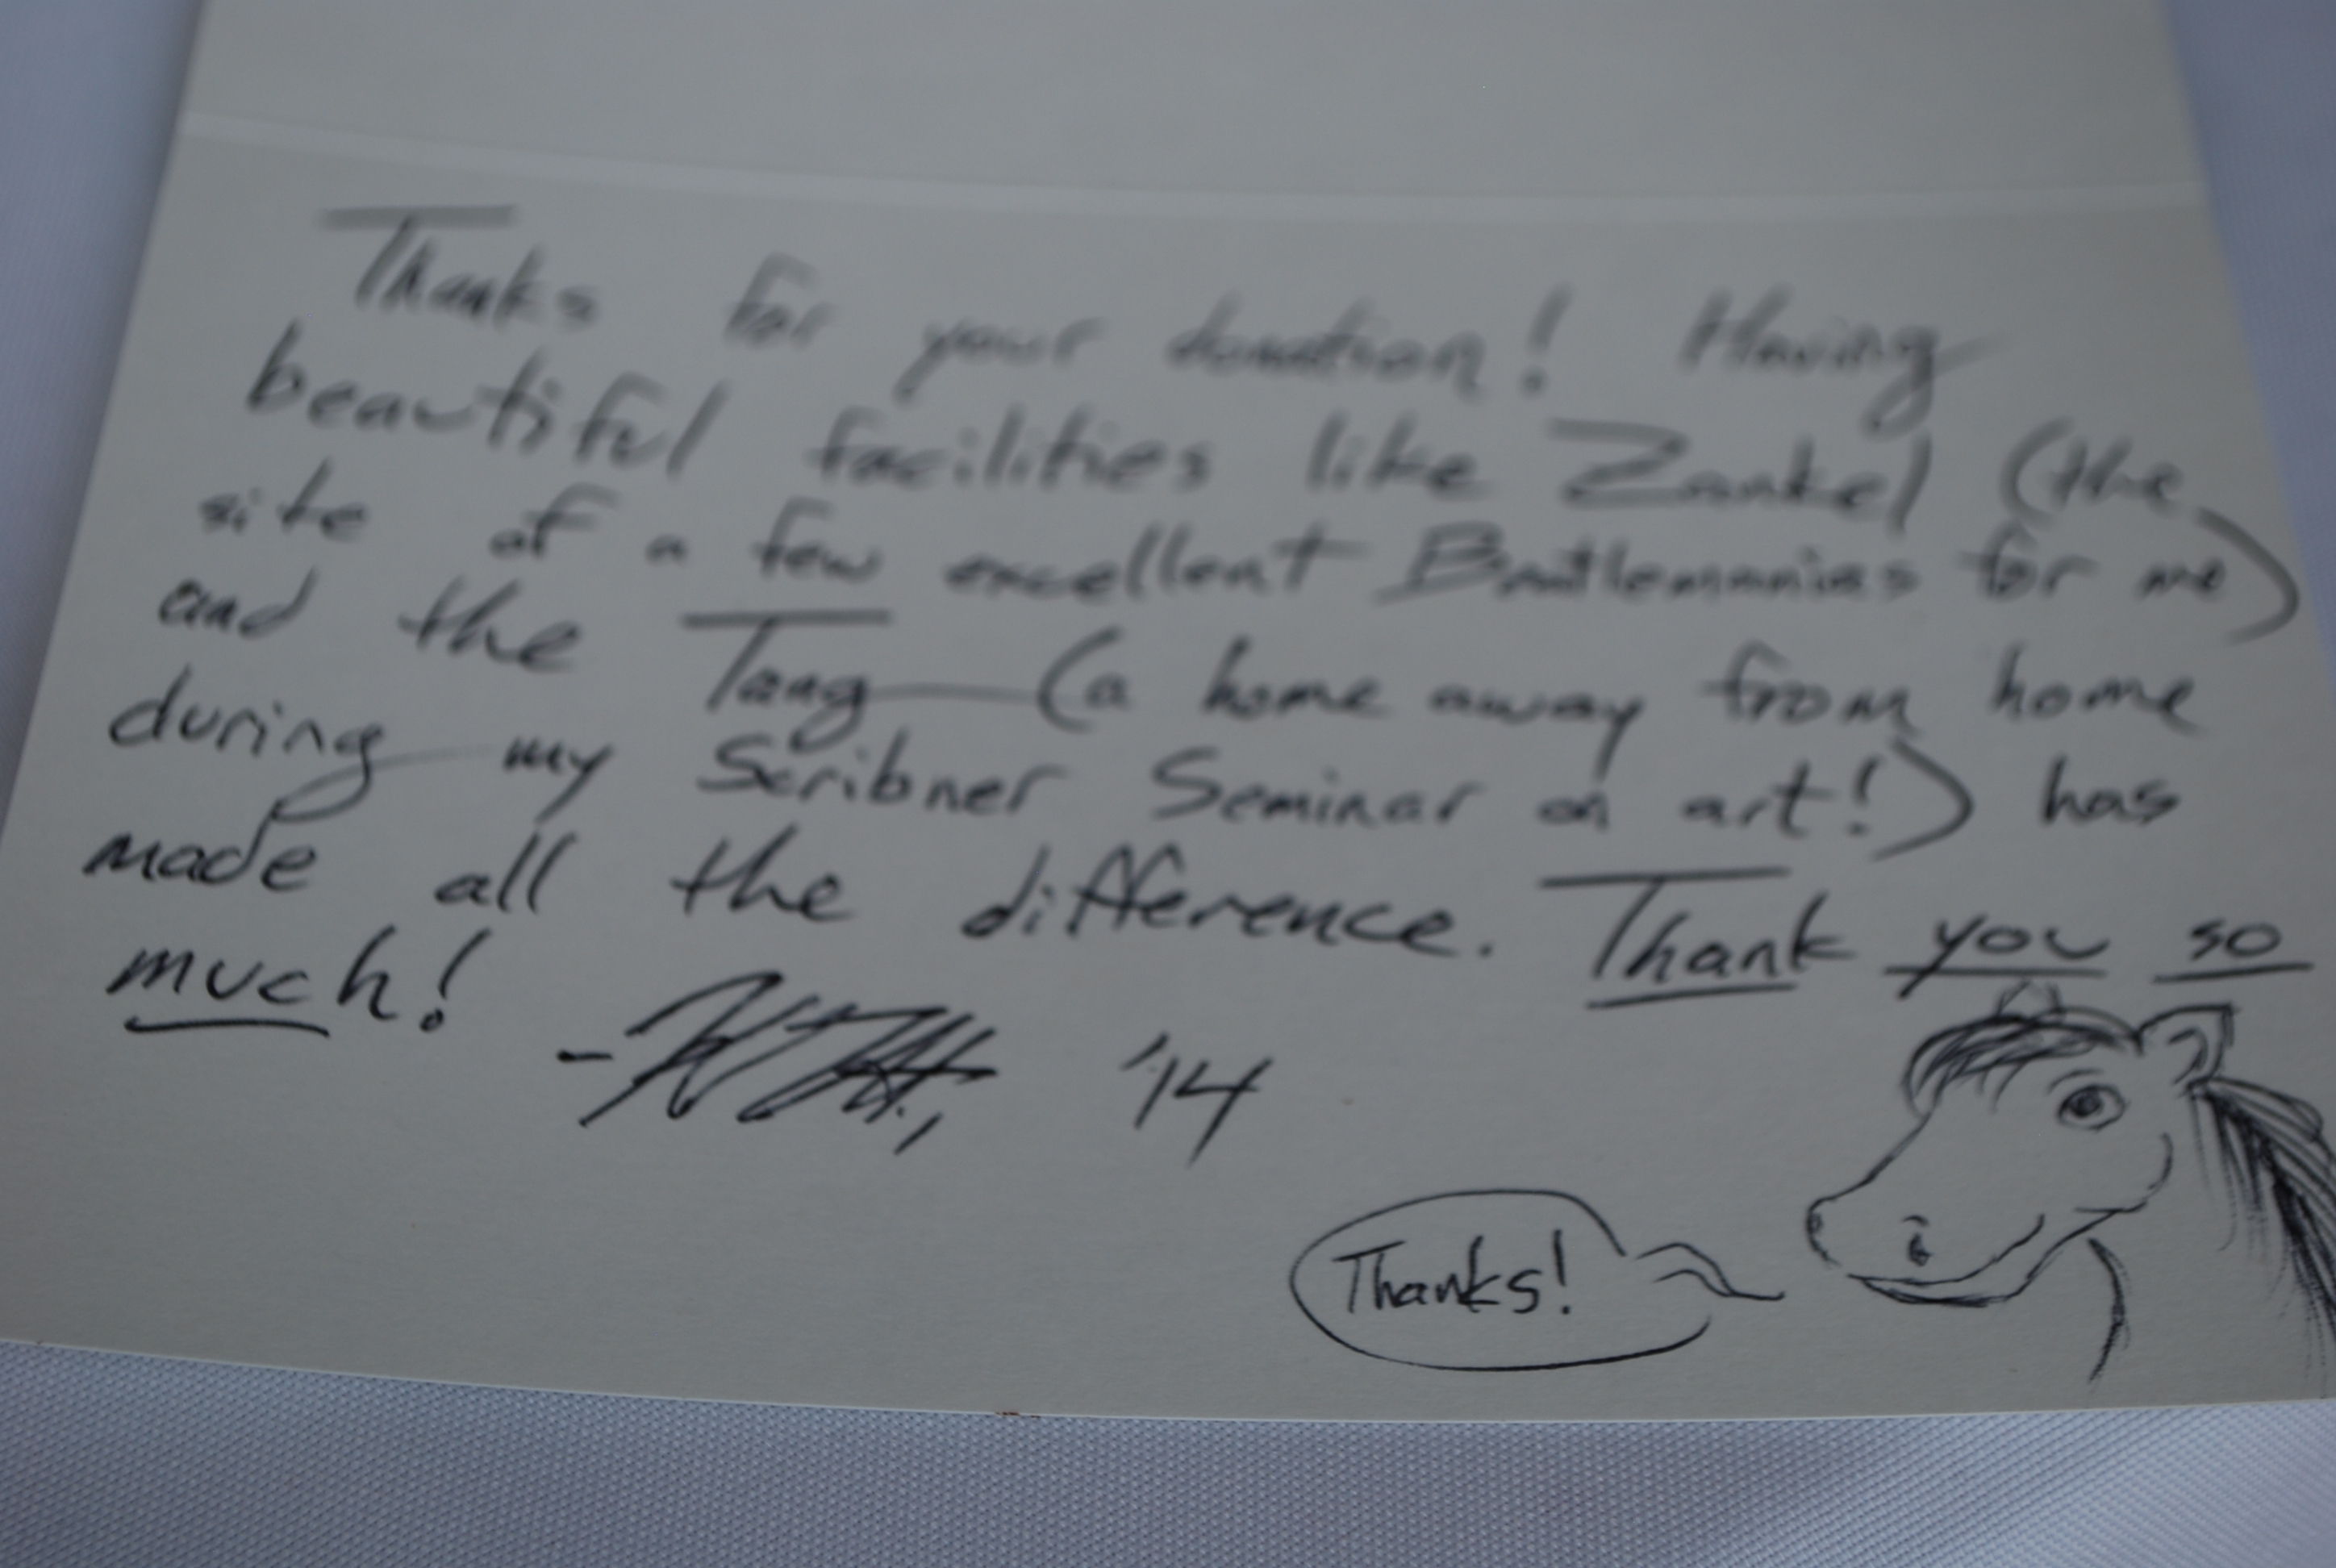 Thanks for your donation! Having
beautiful facilities like Zankel (the
site of a few excellent Beatlemanias for me)
and the Tang (a home away from home
during my Scribner Seminar on art!) has
made all the difference. Thank you so
much!
'14
Thanks!